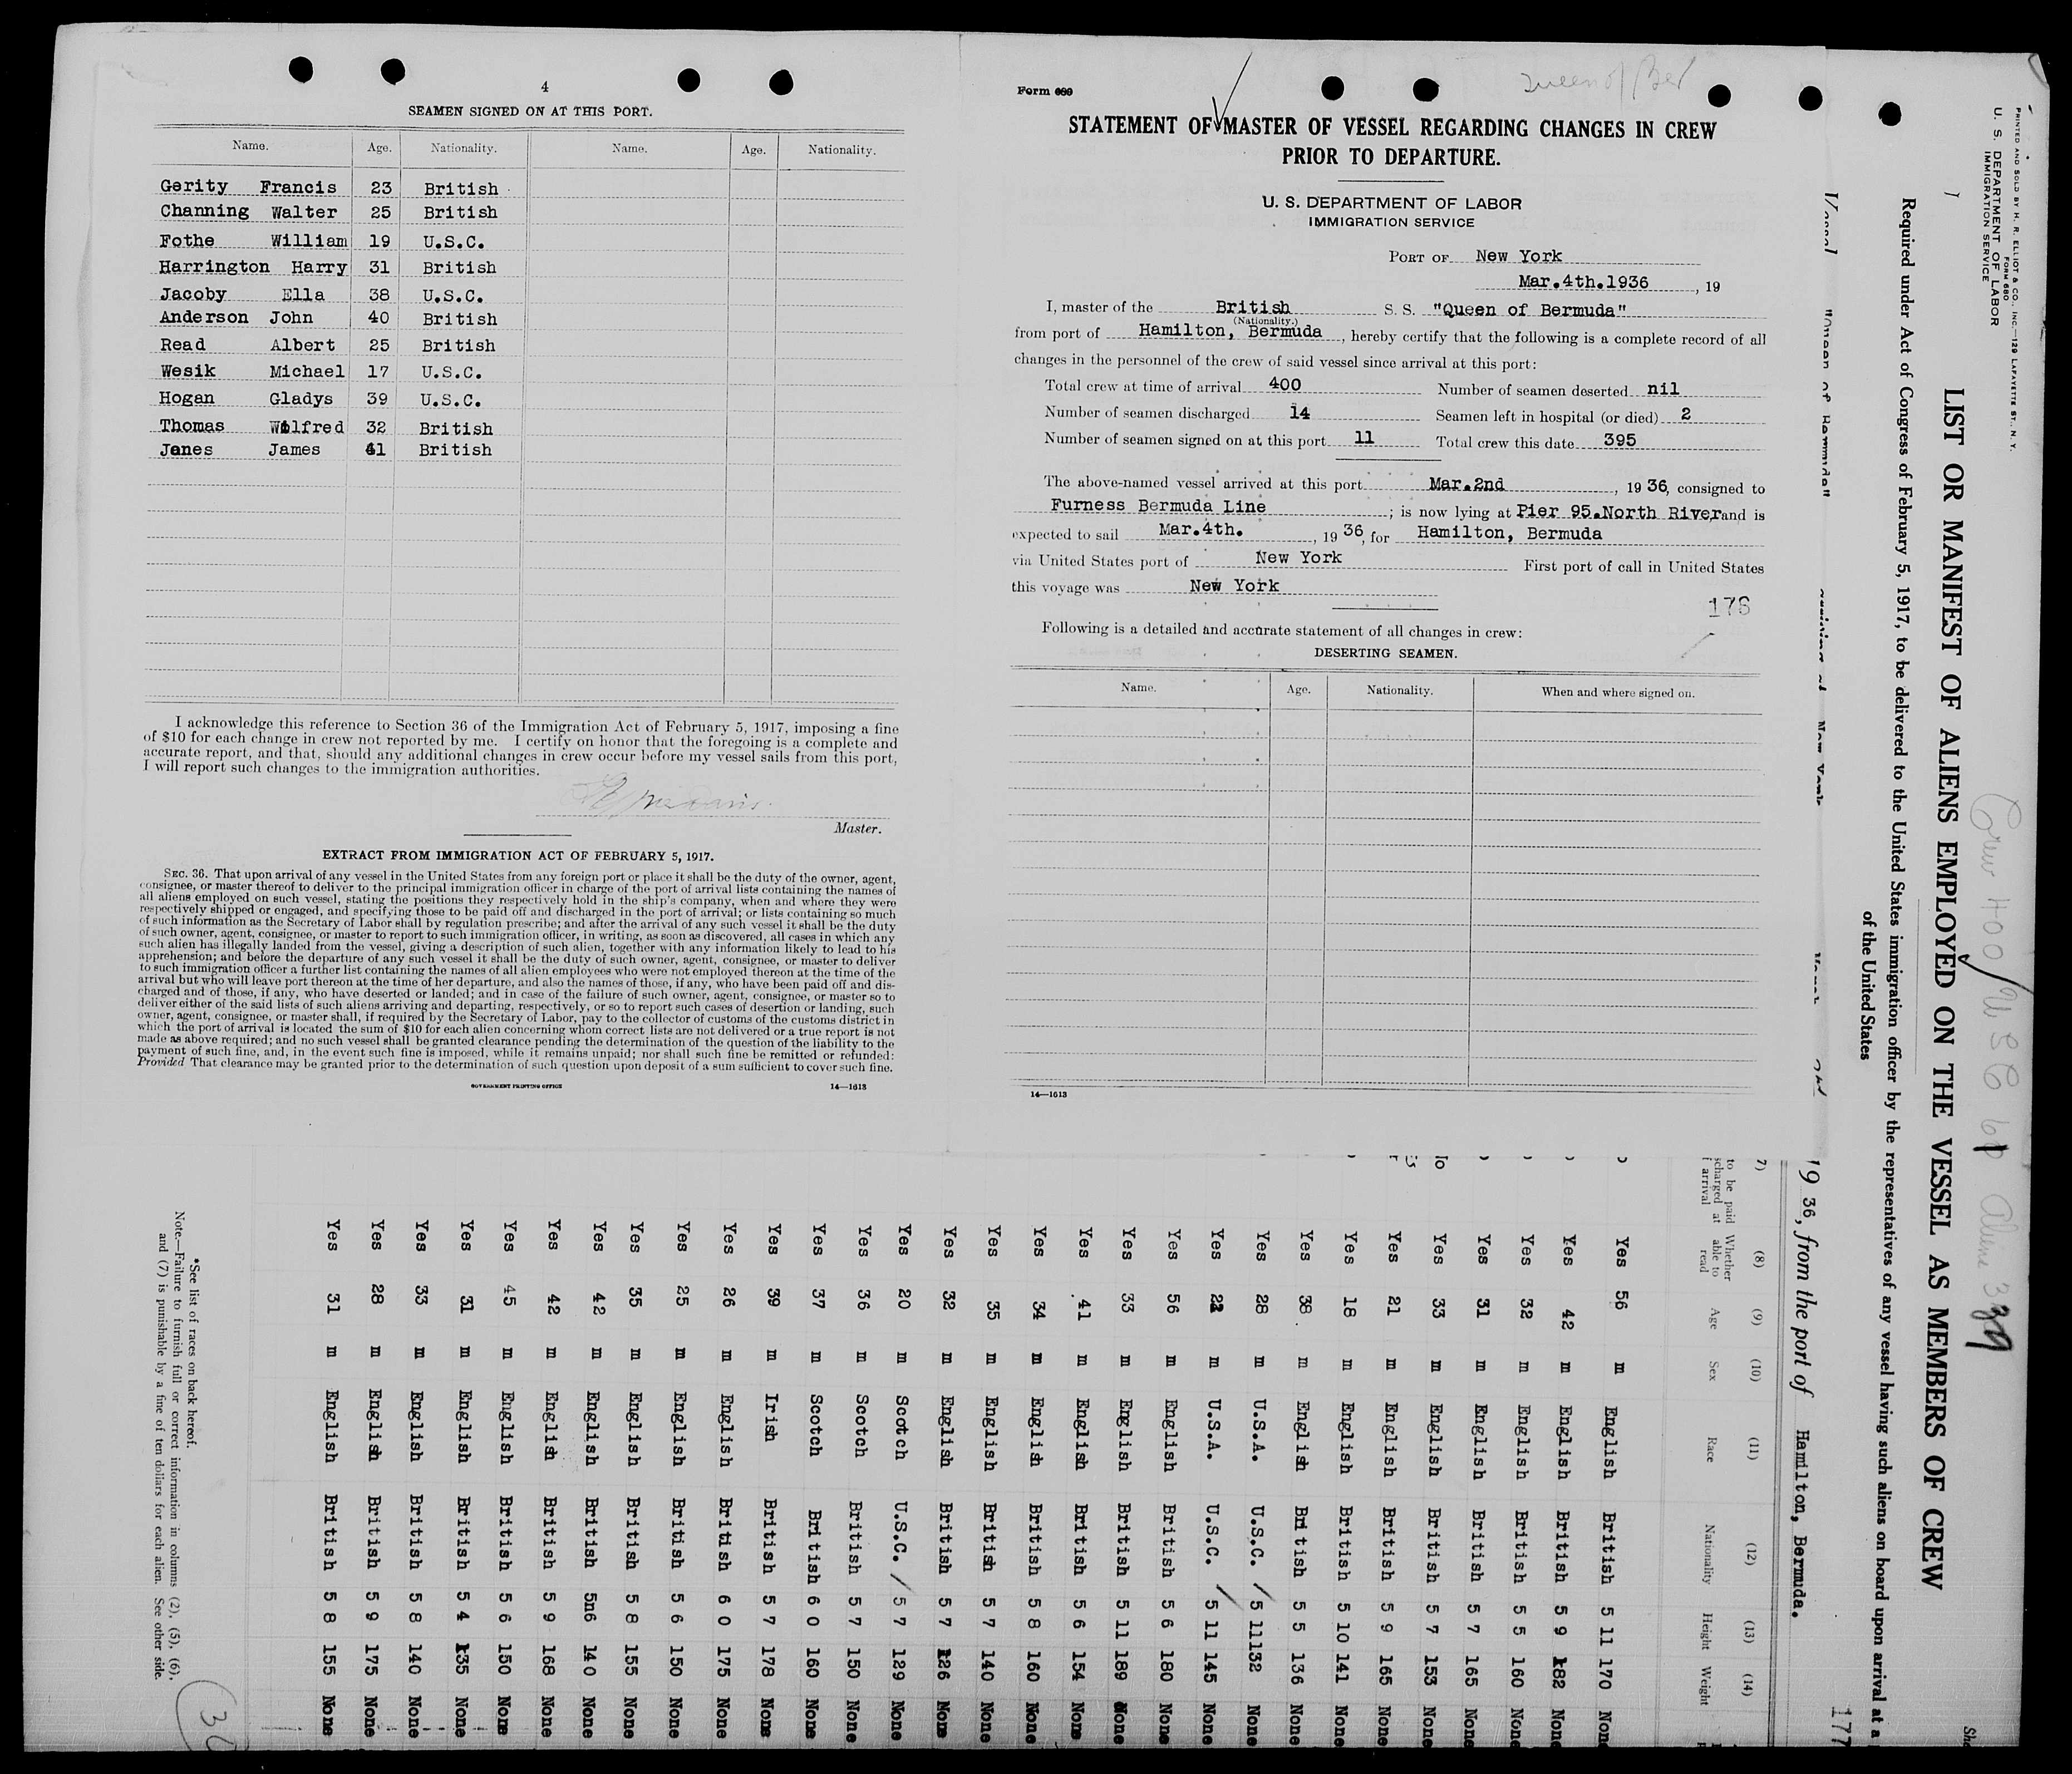 4
SEAMEN SIGNED ON AT THIS PORT.
Name. Age. Nationality. Name. Age. Nationality.
Gerity Francis 23 British
Channing Walter 25 British
Fothe William 19 U.S.C.
Harrington Harry 31 British
Jacoby Ella 38 U.S.C.
Anderson John 40 British
Read Albert 25 British
Wesik Michael 17 U.S.C.
Hogan Gladys 39 U.S.C.
Thomas Wilfred 32 British
Janes James 41 British
I acknowledge this reference to Section 36 of the Immigration Act of February 5, 1917, imposing a fine
of $10 for each change in crew not reported by me. I certify on honor that the foregoing is a complete and
accurate report, and that, should any additional changes in crew occur before my vessel sails from this port,
I will report such changes to the immigration authorities.
Master.
EXTRACT FROM IMMIGRATION ACT OF FEBRUARY 5, 1917.
SEC. 36. That upon arrival of any vessel in the United States from any foreign port or place it shall be the duty of the owner, agent,
consignee, or master thereof to deliver to the principal immigration officer in charge of the port of arrival lists containing the names of
all aliens employed on such vessel, stating the positions they respectively hold in the ship's company, when and where they were
respectively shipped or engaged, and specifying those to be paid off and discharged in the port of arrival; or lists containing so much
of such information as the Secretary of Labor shall by regulation prescribe; and after the arrival of any such vessel it shall be the duty
of such owner, agent, consignee, or master to report to such immigration officer, in writing, as soon as discovered, all cases in which any
such alien has illegally landed from the vessel, giving a description of such alien, together with any information likely to lead to his
apprehension; and before the departure of any such vessel it shall be the duty of such owner, agent, consignee, or master to deliver
to such immigration officer a further list containing the names of all alien employees who were not employed thereon at the time of the
arrival but who will leave port thereon at the time of her departure, and also the names of those, if any, who have been paid off and dis-
charged and of those, if any, who have deserted or landed; and in case of the failure of such owner, agent, consignee, or master so to
deliver either of the said lists of such aliens arriving and departing, respectively, or so to report such cases of desertion or landing, such
owner, agent, consignee, or master shall, if required by the Secretary of Labor, pay to the collector of customs of the customs district in
which the port of arrival is located the sum of $10 for each alien concerning whom correct lists are not delivered or a true report is not
made as above required; and no such vessel shall be granted clearance pending the determination of the question of the liability to the
payment of such fine, and, in the event such fine is imposed, while it remains unpaid; nor shall such fine be remitted or refunded:
Provided That clearance may be granted prior to the determination of such question upon deposit of a sum sufficient to cover such fine.
GOVERNMENT PRINTING OFFICE 14—1613
Queen of Ber
Form 689
STATEMENT OF MASTER OF VESSEL REGARDING CHANGES IN CREW
PRIOR TO DEPARTURE.
U. S. DEPARTMENT OF LABOR
IMMIGRATION SERVICE
PORT OF New York
Mar.4th.1936, 19
I, master of the British S. S. "Queen of Bermuda"
(Nationality.)
from port of Hamilton, Bermuda, hereby certify that the following is a complete record of all
changes in the personnel of the crew of said vessel since arrival at this port:
Total crew at time of arrival 400 Number of seamen deserted nil
Number of seamen discharged 14 Seamen left in hospital (or died) 2
Number of seamen signed on at this port 11 Total crew this date 395
The above-named vessel arrived at this port Mar.2nd, 19 36, consigned to
Furness Bermuda Line; is now lying at Pier 95.North River and is
expected to sail Mar.4th., 19 36, for Hamilton, Bermuda
via United States port of New York First port of call in United States
this voyage was New York
176
Following is a detailed and accurate statement of all changes in crew:
DESERTING SEAMEN.
Name. Age. Nationality. When and where signed on.
14—1613
PRINTED AND SOLD BY H. R. ELLIOT & CO., INC.—129 LAFAYETTE ST., N. Y.
FORM 680
U. S. DEPARTMENT OF LABOR
IMMIGRATION SERVICE
Crew 400/USC 61 Aliens 339
LIST OR MANIFEST OF ALIENS EMPLOYED ON THE VESSEL AS MEMBERS OF CREW
Required under Act of Congress of February 5, 1917, to be delivered to the United States immigration officer by the representatives of any vessel having such aliens on board upon arrival at a
of the United States
177
Vessel "Queen of Bermuda" arriving at New York
19 36, from the port of Hamilton, Bermuda.
7) (8) (9) (10) (11) (12) (13) (14)
to be paid Whether Age Sex Race Nationality Height Weight
scharged at able to
f arrival read
Yes 56 m English British 5 11 170 None
Yes 42 m English British 5 9 182 None
Yes 32 m English British 5 5 160 None
Yes 31 m English British 5 7 165 None
Yes 33 m English British 5 7 153 None
Yes 21 m English British 5 9 165 None
Yes 18 m English British 5 10 141 None
Yes 38 m English British 5 5 136 None
Yes 28 m U.S.A. U.S.C. / 5 11 132 None
Yes 22 m U.S.A. U.S.C. / 5 11 145 None
Yes 56 m English British 5 6 180 None
Yes 33 m English British 5 11 189 None
Yes 41 m English British 5 6 154 None
Yes 34 m English British 5 8 160 None
Yes 35 m English British 5 7 140 None
Yes 32 m English British 5 7 126 None
Yes 20 m Scotch U.S.C. / 5 7 129 None
Yes 36 m Scotch British 5 7 150 None
Yes 37 m Scotch British 6 0 160 None
Yes 39 m Irish British 5 7 178 None
Yes 26 m English British 6 0 175 None
Yes 25 m English British 5 6 150 None
Yes 35 m English British 5 8 155 None
Yes 42 m English British 5n6 140 None
Yes 42 m English British 5 9 168 None
Yes 45 m English British 5 6 150 None
Yes 31 m English British 5 4 135 None
Yes 33 m English British 5 8 140 None
Yes 28 m English British 5 9 175 None
Yes 31 m English British 5 8 155 None
*See list of races on back hereof.
Note.—Failure to furnish full or correct information in columns (2), (5), (6),
and (7) is punishable by a fine of ten dollars for each alien. See other side.